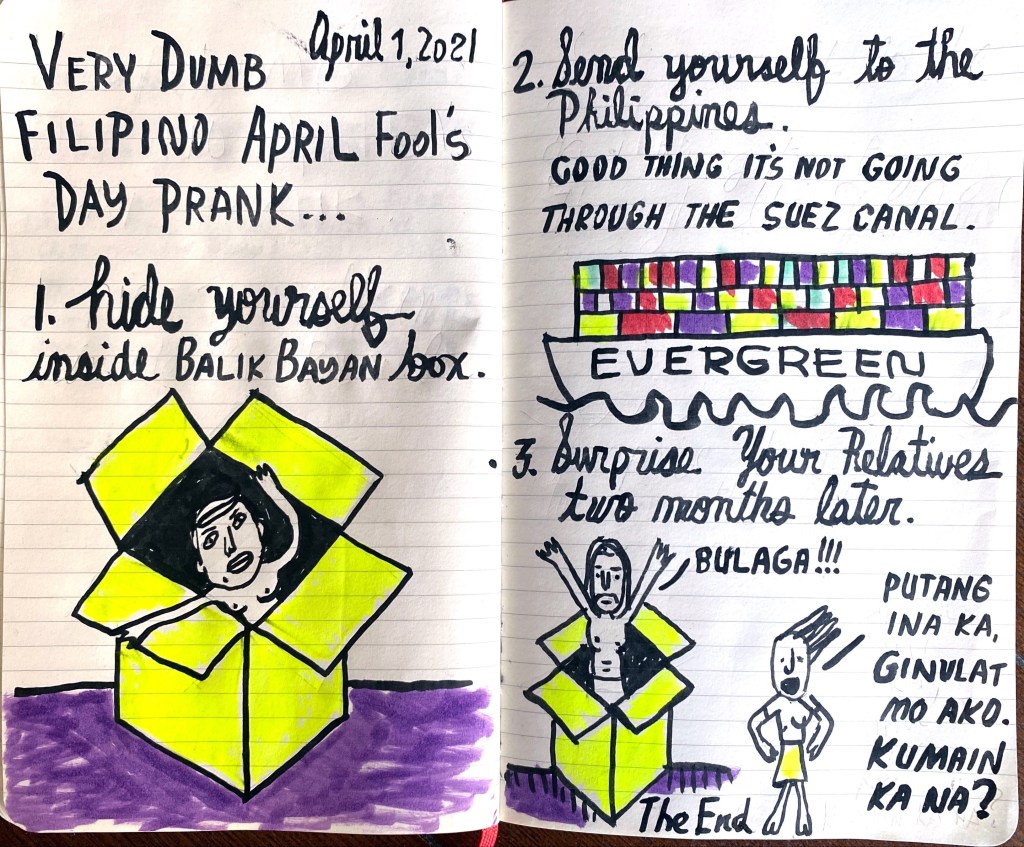 April 1, 2021
VERY DUMB
FILIPINO APRIL Fool's
DAY PRANK...
1. hide yourself
inside BALIK BAYAN box.
2. Send yourself to the
Philippines.
GOOD THING IT'S NOT GOING
THROUGH THE SUEZ CANAL.
EVERGREEN
3. Surprise Your Relatives
two months later.
BULAGA!!!
PUTANG
INA KA,
GINULAT
MO AKO.
KUMAIN
KA NA?
The End